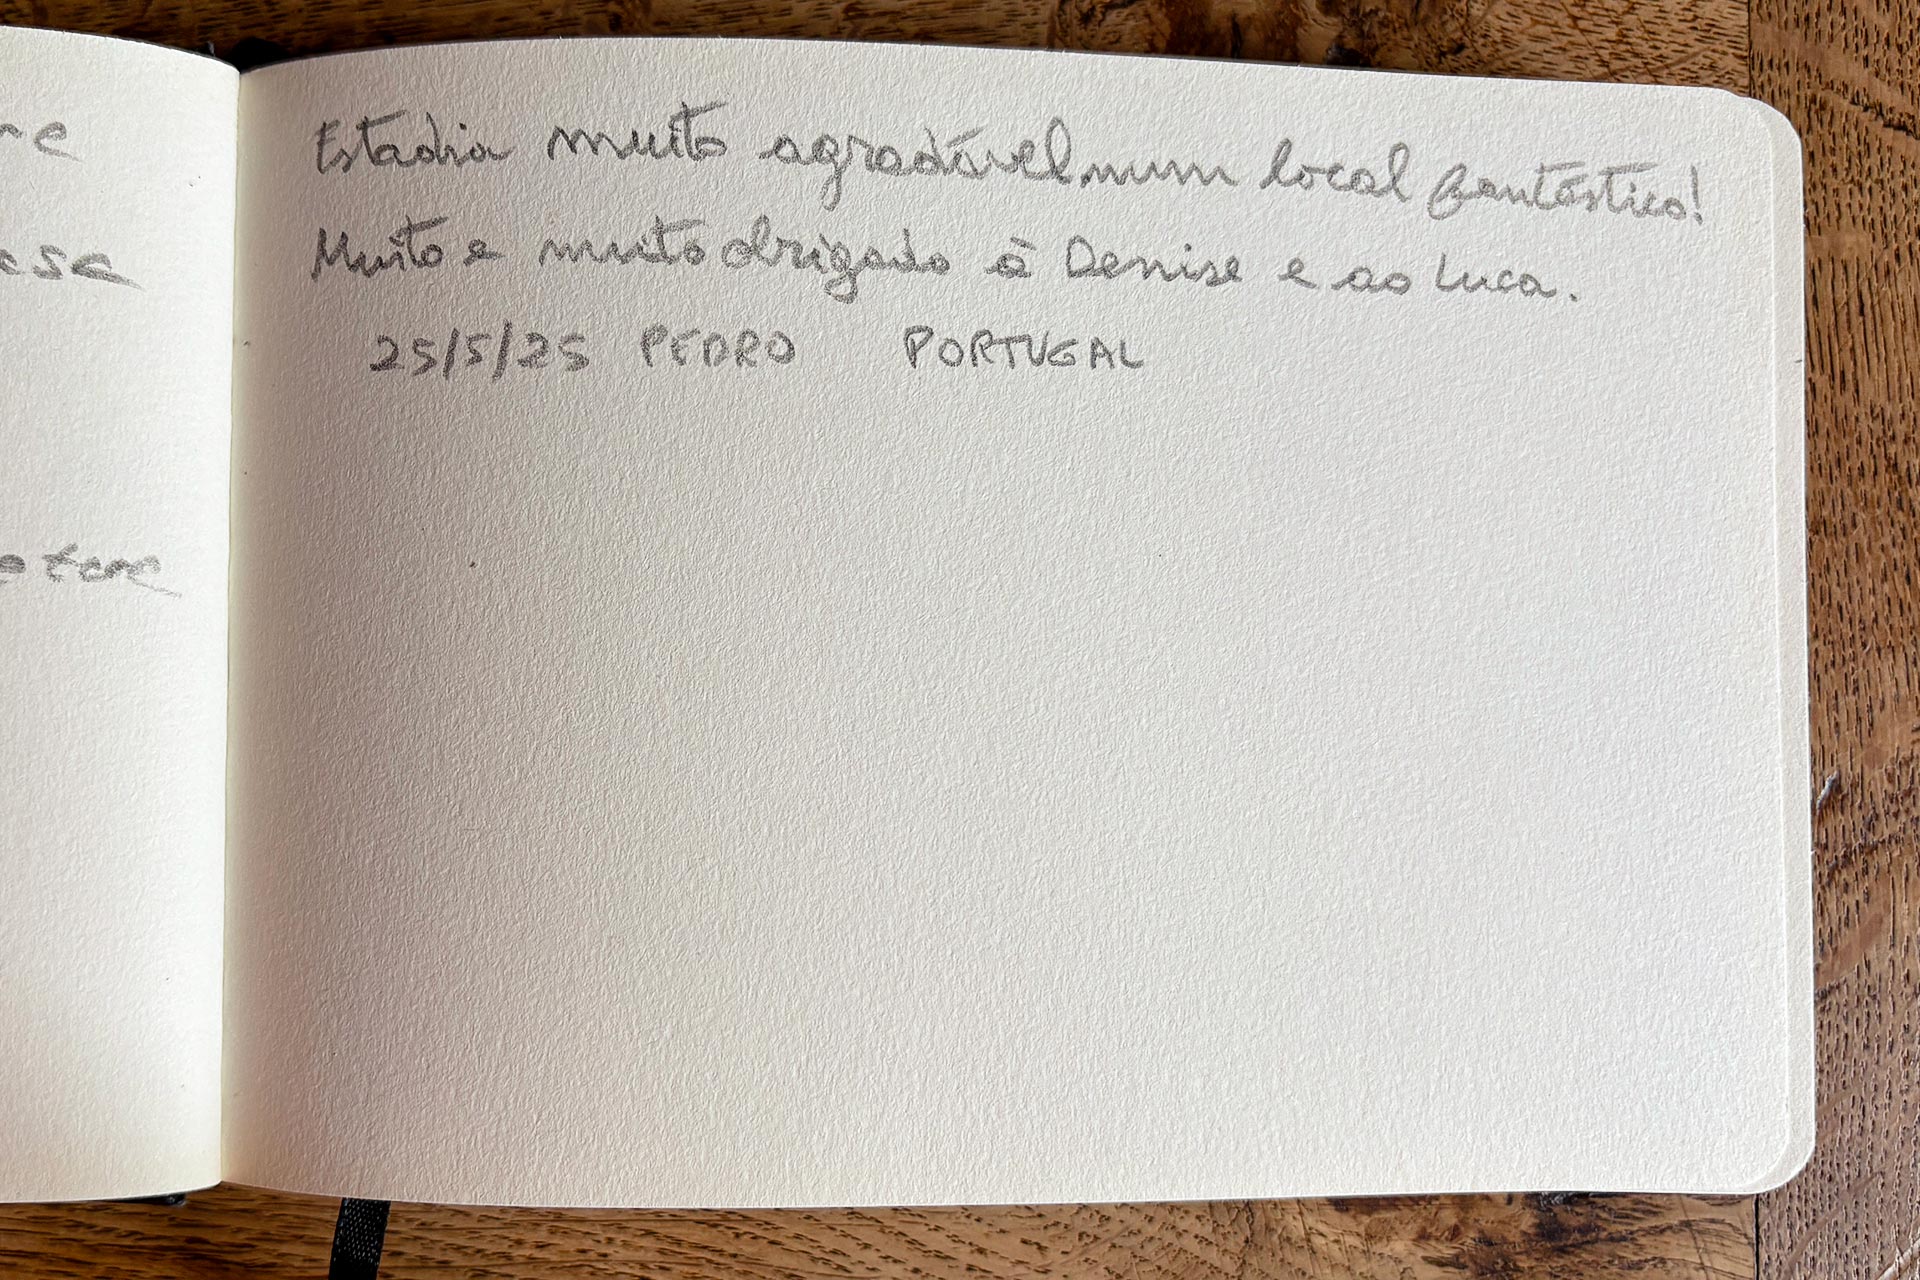 Estadia muito agradável num local fantástico!
Muito e muito obrigado à Denise e ao Luca.
25/5/25 PEDRO PORTUGAL